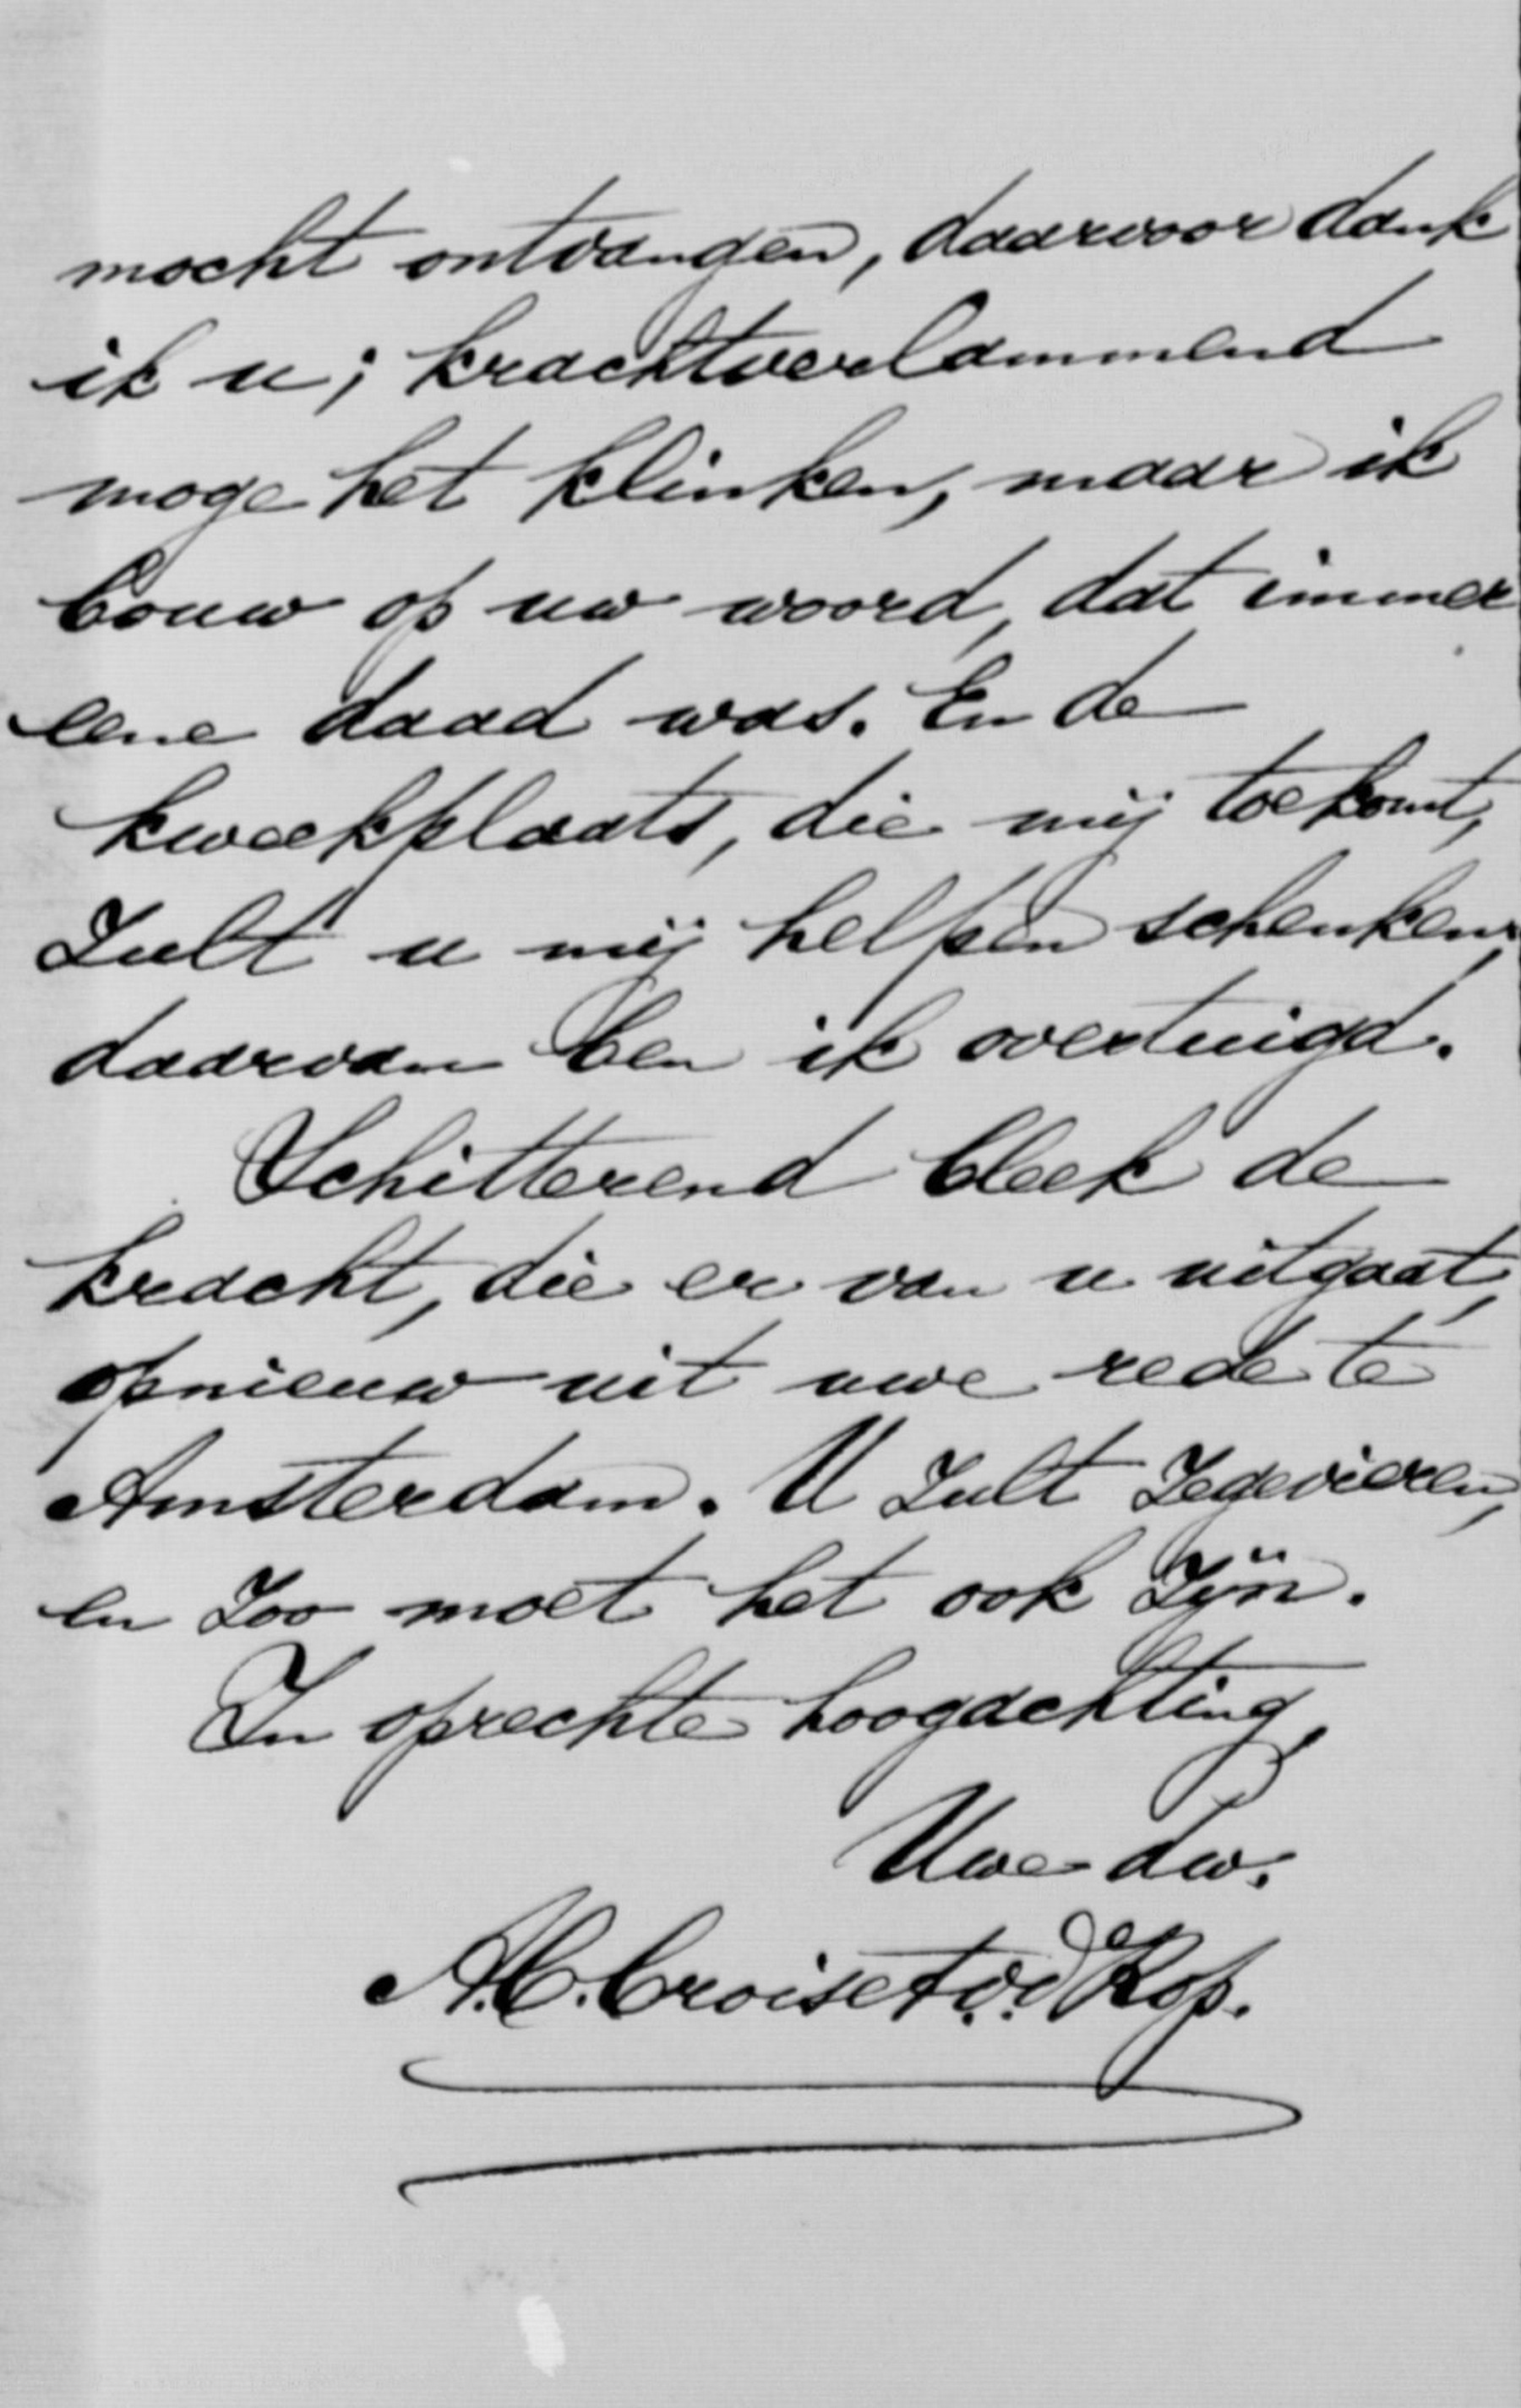 mocht ontvangen, daarvoor dank
ik u; krachtverlammend
moge het klinken, maar ik
bouw op uw woord, dat immer
eene daad was. En de
kweekplaats, die mij toekomt,
zult u mij helpen schenken,
daarvan ben ik overtuigd.
Schitterend bleek de
kracht, die er van u uitgaat,
opnieuw uit uwe rede te
Amsterdam. U zult zegevieren,
en zoo moet het ook zijn.
In oprechte hoogachting,
Uwe dw.
A.C. Croiset v.d. Kop.